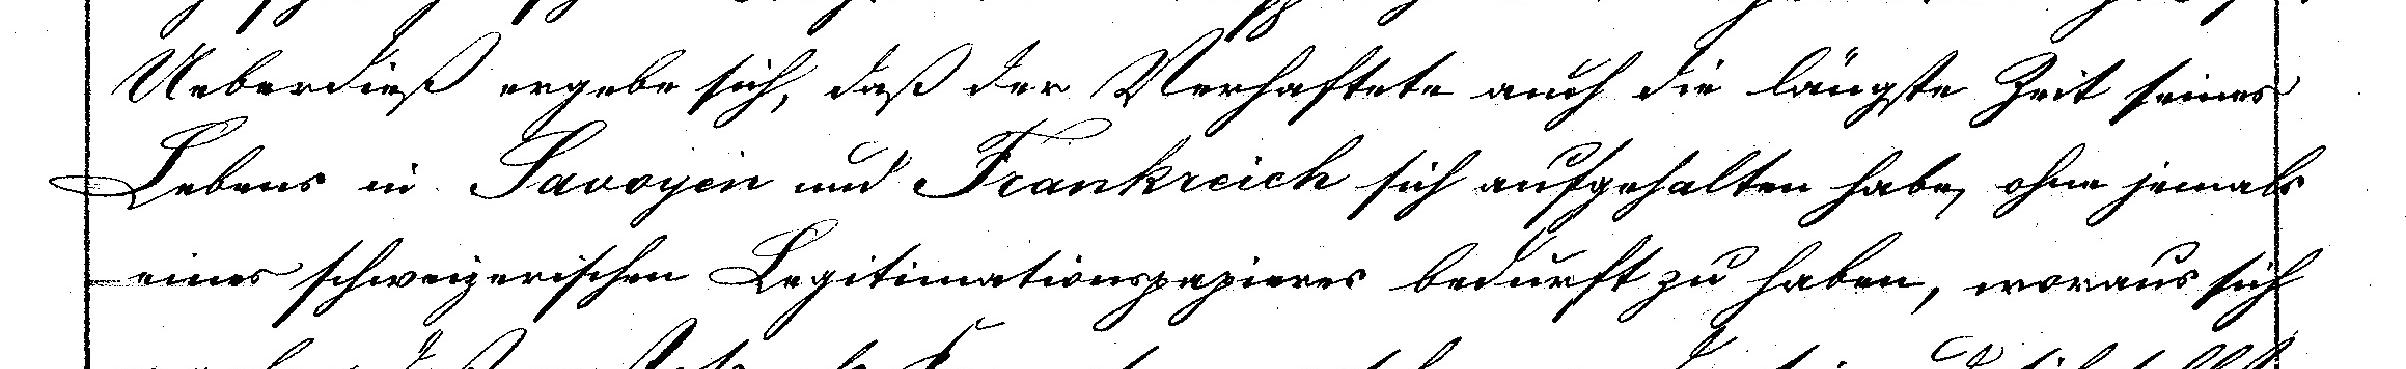 Ueberdieß ergebe sich, daß der Verhaftete auch die längste Zeit seines
Lebens in Savoyen und Frankreich sich aufgehalten habe, ohne jemals
eines schweizerischen Legitimationspapieres bedurft zu haben, woraus sich